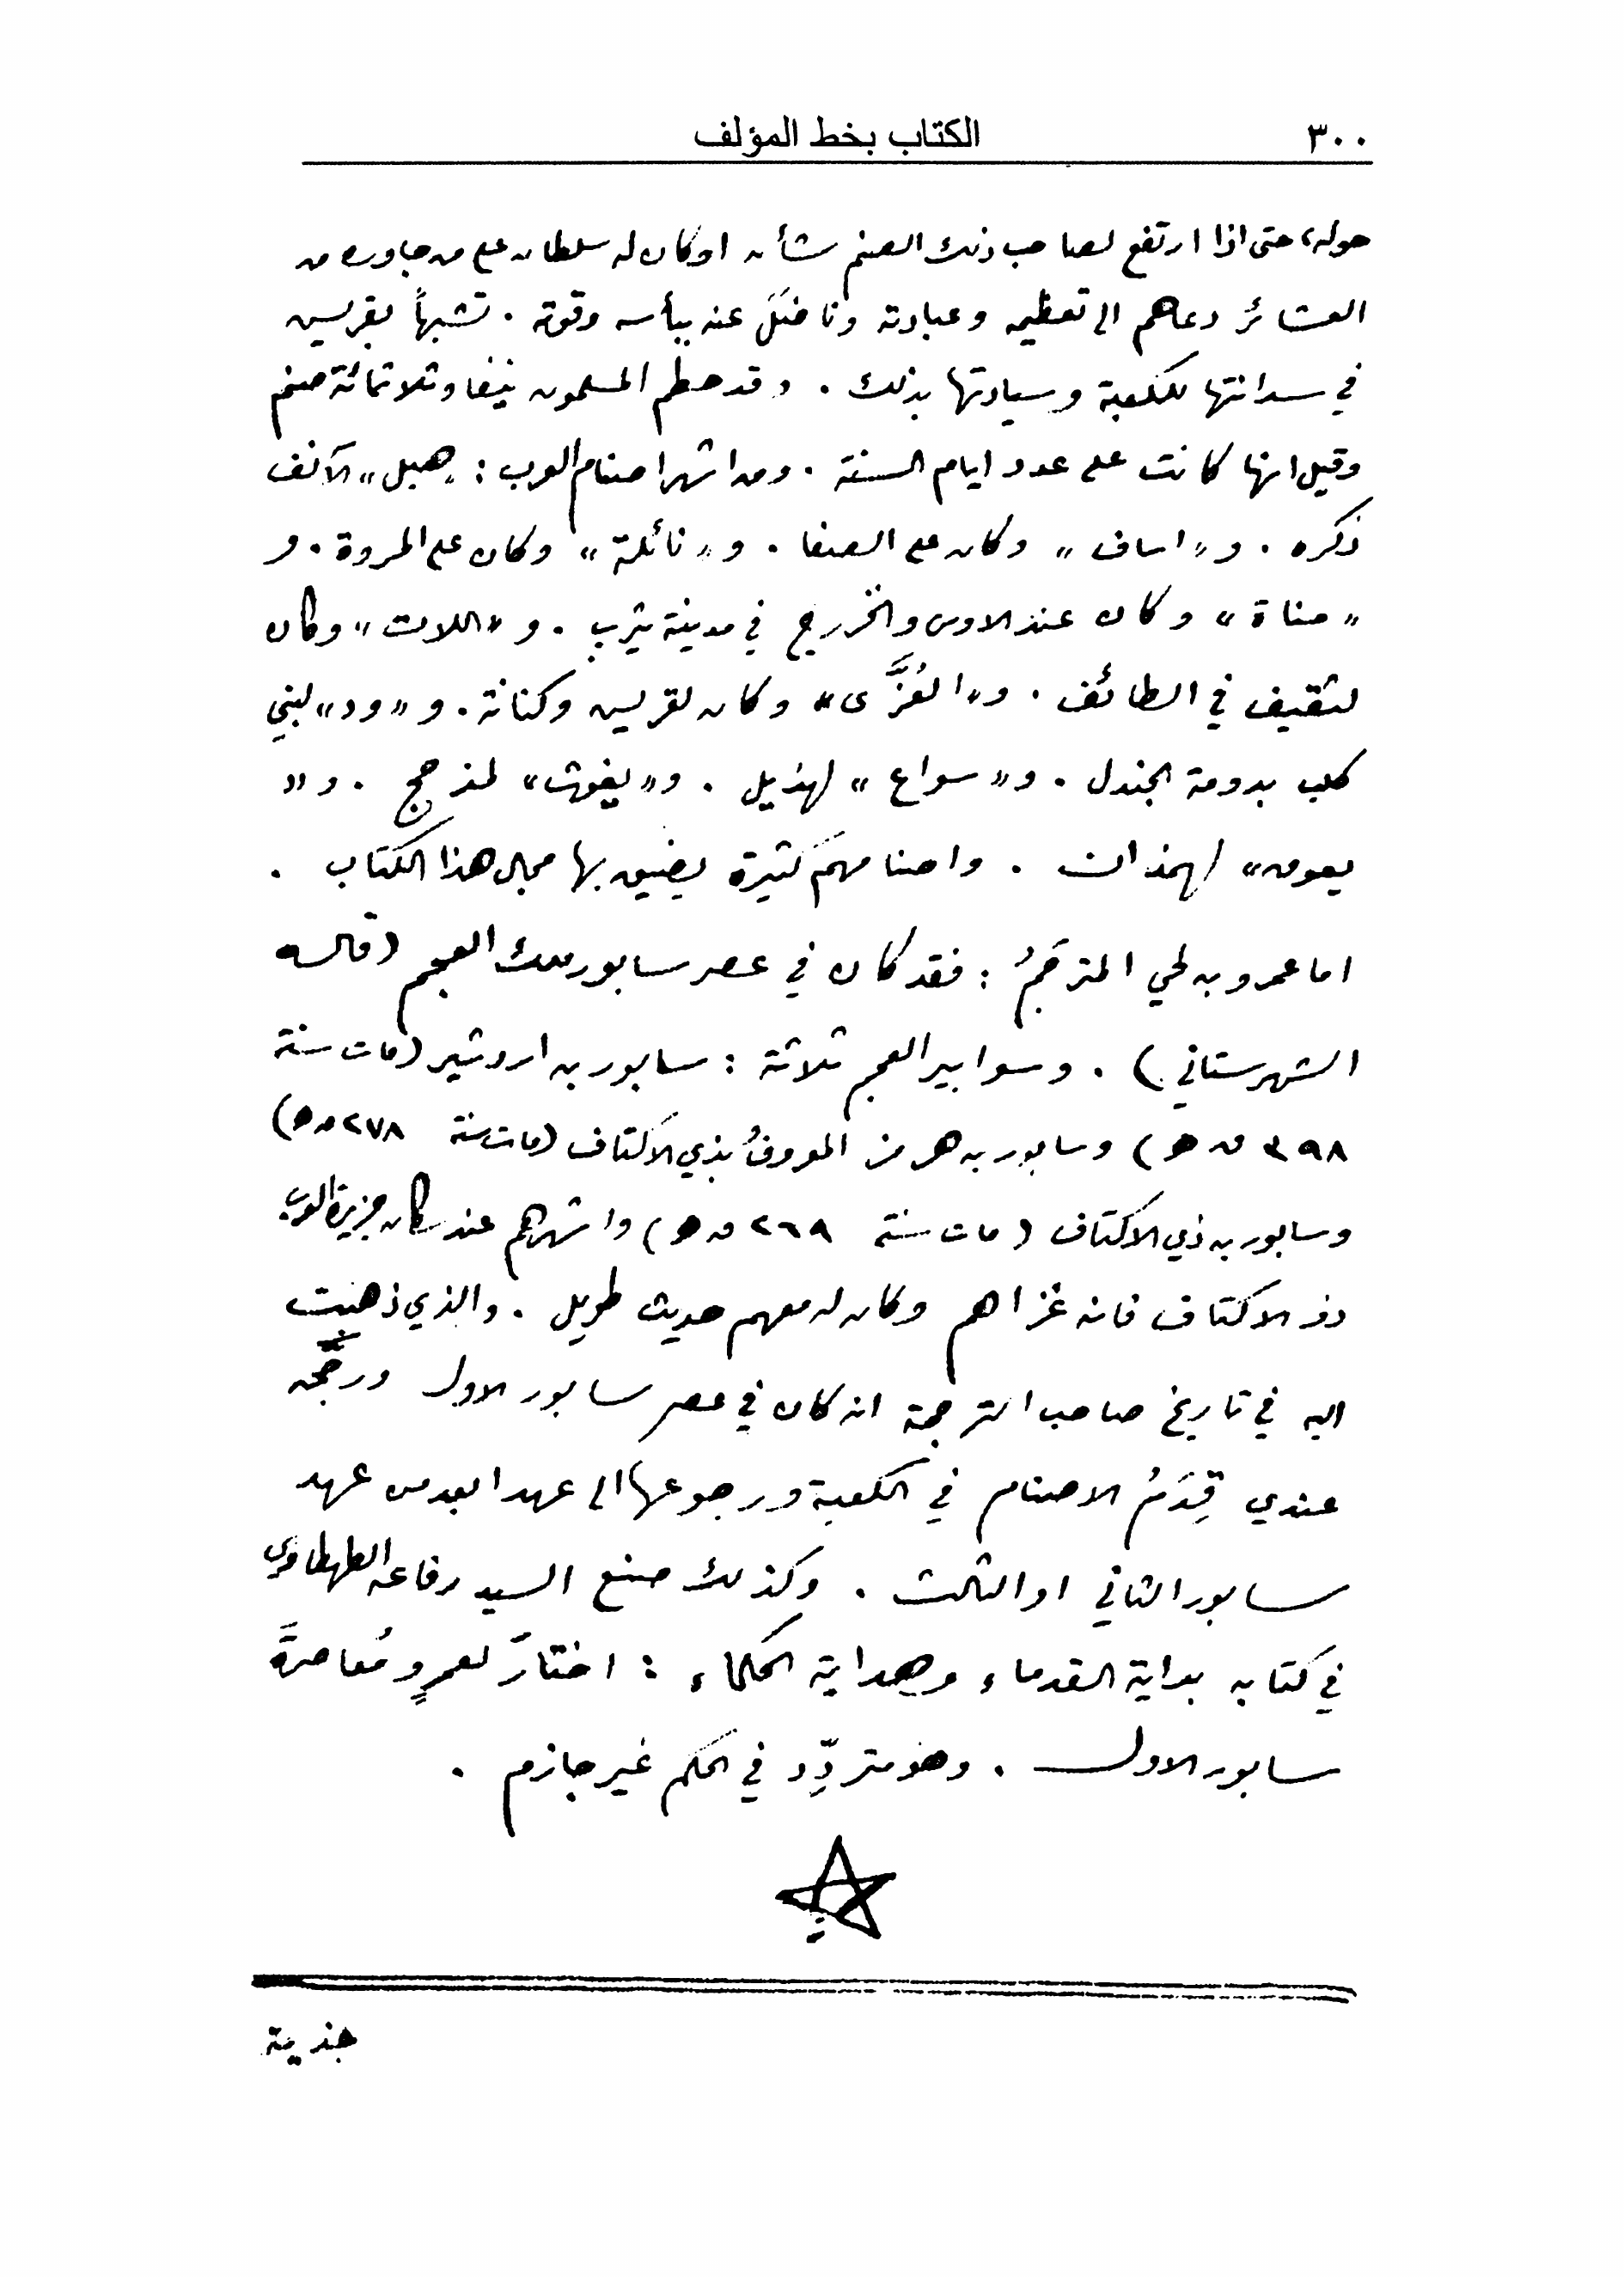 ٣٠٠ الكتاب بخط المؤلف
حوله، حتى اذا ارتفع لصاحب ذلك الصنم شأن او كان له سلطان على من جاوره من
العشائر دعاهم الى تعظيمه وعبادته وناضَلَ عنه ببأسه وقوته . تشبهاً بقريس
في سدانتها للكعبة وسيادتها بذلك . وقد حطم المسلمون نيفا وثلاثمائة صنم
وقيل انها كانت على عدد ايام السنة . ومن اشهر اصنام العرب : „هبل" الآنف
ذكره . و „اساف" وكان على الصفا . و „نائلة" وكان على المروة . و
„مناة" وكان عند الاوس والخزرج في مدينة يثرب . و „اللات" وكان
لثقيف في الطائف . و „العُزَّى" وكان لقريس وكنانة . و „ود" لبني
كلب بدومة الجندل . و „سواع" لهذيل . و „يغوث" لمذحج . و „
يعوق" لهمذان . واصنامهم كثيرة يضيق بها مجال هذا الكتاب .
اما عمرو بن لحي المترجَمُ : فقد كان في عصر سابور ملك العجم (قاله
الشهرستاني) . وسوابير العجم ثلاثة : سابور بن اردشير (مات سنة
٣٩٨ ق ه) وسابور بن هرمز المعروفُ بذي الاكتاف (مات سنة ٢٧٨ ق ه)
وسابور بن ذي الاكتاف (مات سنة ٢٦٩ ق ه) واشهرهم عند سكان جزيرة العرب
ذو الاكتاف فانه غزاهم وكان له معهم حديث طويل . والذي ذهبت
اليه في تاريخ صاحب الترجمة انه كان في عصر سابور الاول ورجَّحه
عندي قِدَمُ الاصنام في الكعبة ورجوعها الى عهد ابعد من عهد
سابور الثاني او الثالث . وكذلك صنع السيد رفاعه الطهطاوي
في كتابه بداية القدماء وهداية الحكماء : اختارَ لعمرٍو مُعاصرةَ
سابور الاول . وهو متردِّد في الحكم غير جازم .
جذيمة